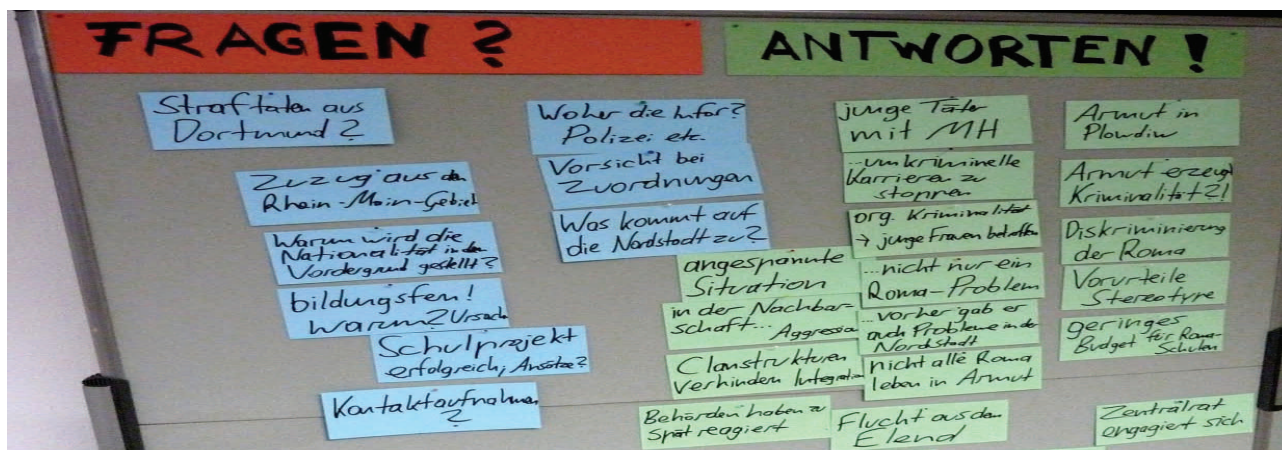 FRAGEN ?
Straftaten aus
Dortmund ?
Zuzug aus dem
Rhein-Main-Gebiet
Warum wird die
Nationalität in den
Vordergrund gestellt?
bildungsfern!
Warum? Ursach
Schulprojekt
erfolgreich, Ansätze?
Kontaktaufnahmen
?
Woher die Infor?
Polizei etc.
Vorsicht bei
Zuordnungen
Was kommt auf
die Nordstadt zu?
ANTWORTEN !
angespannte
Situation
in der Nachbar-
schaft... Aggression
Clanstrukturen
verhindern Integration
Behörden haben zu
spät reagiert
junge Täter
mit MH
...um kriminelle
Karrieren zu
stoppen
org. Kriminalität
→ junge Frauen betroffen
...nicht nur ein
Roma-Problem
...vorher gab es
auch Probleme in der
Nordstadt
nicht alle Roma
leben in Armut
Flucht aus dem
Elend
Armut in
Plowdiw
Armut erzeugt
Kriminalität?!
Diskriminierung
der Roma
Vorurteile
Stereotype
geringes
Budget für Roma-
Schulen
Zentralrat
engagiert sich